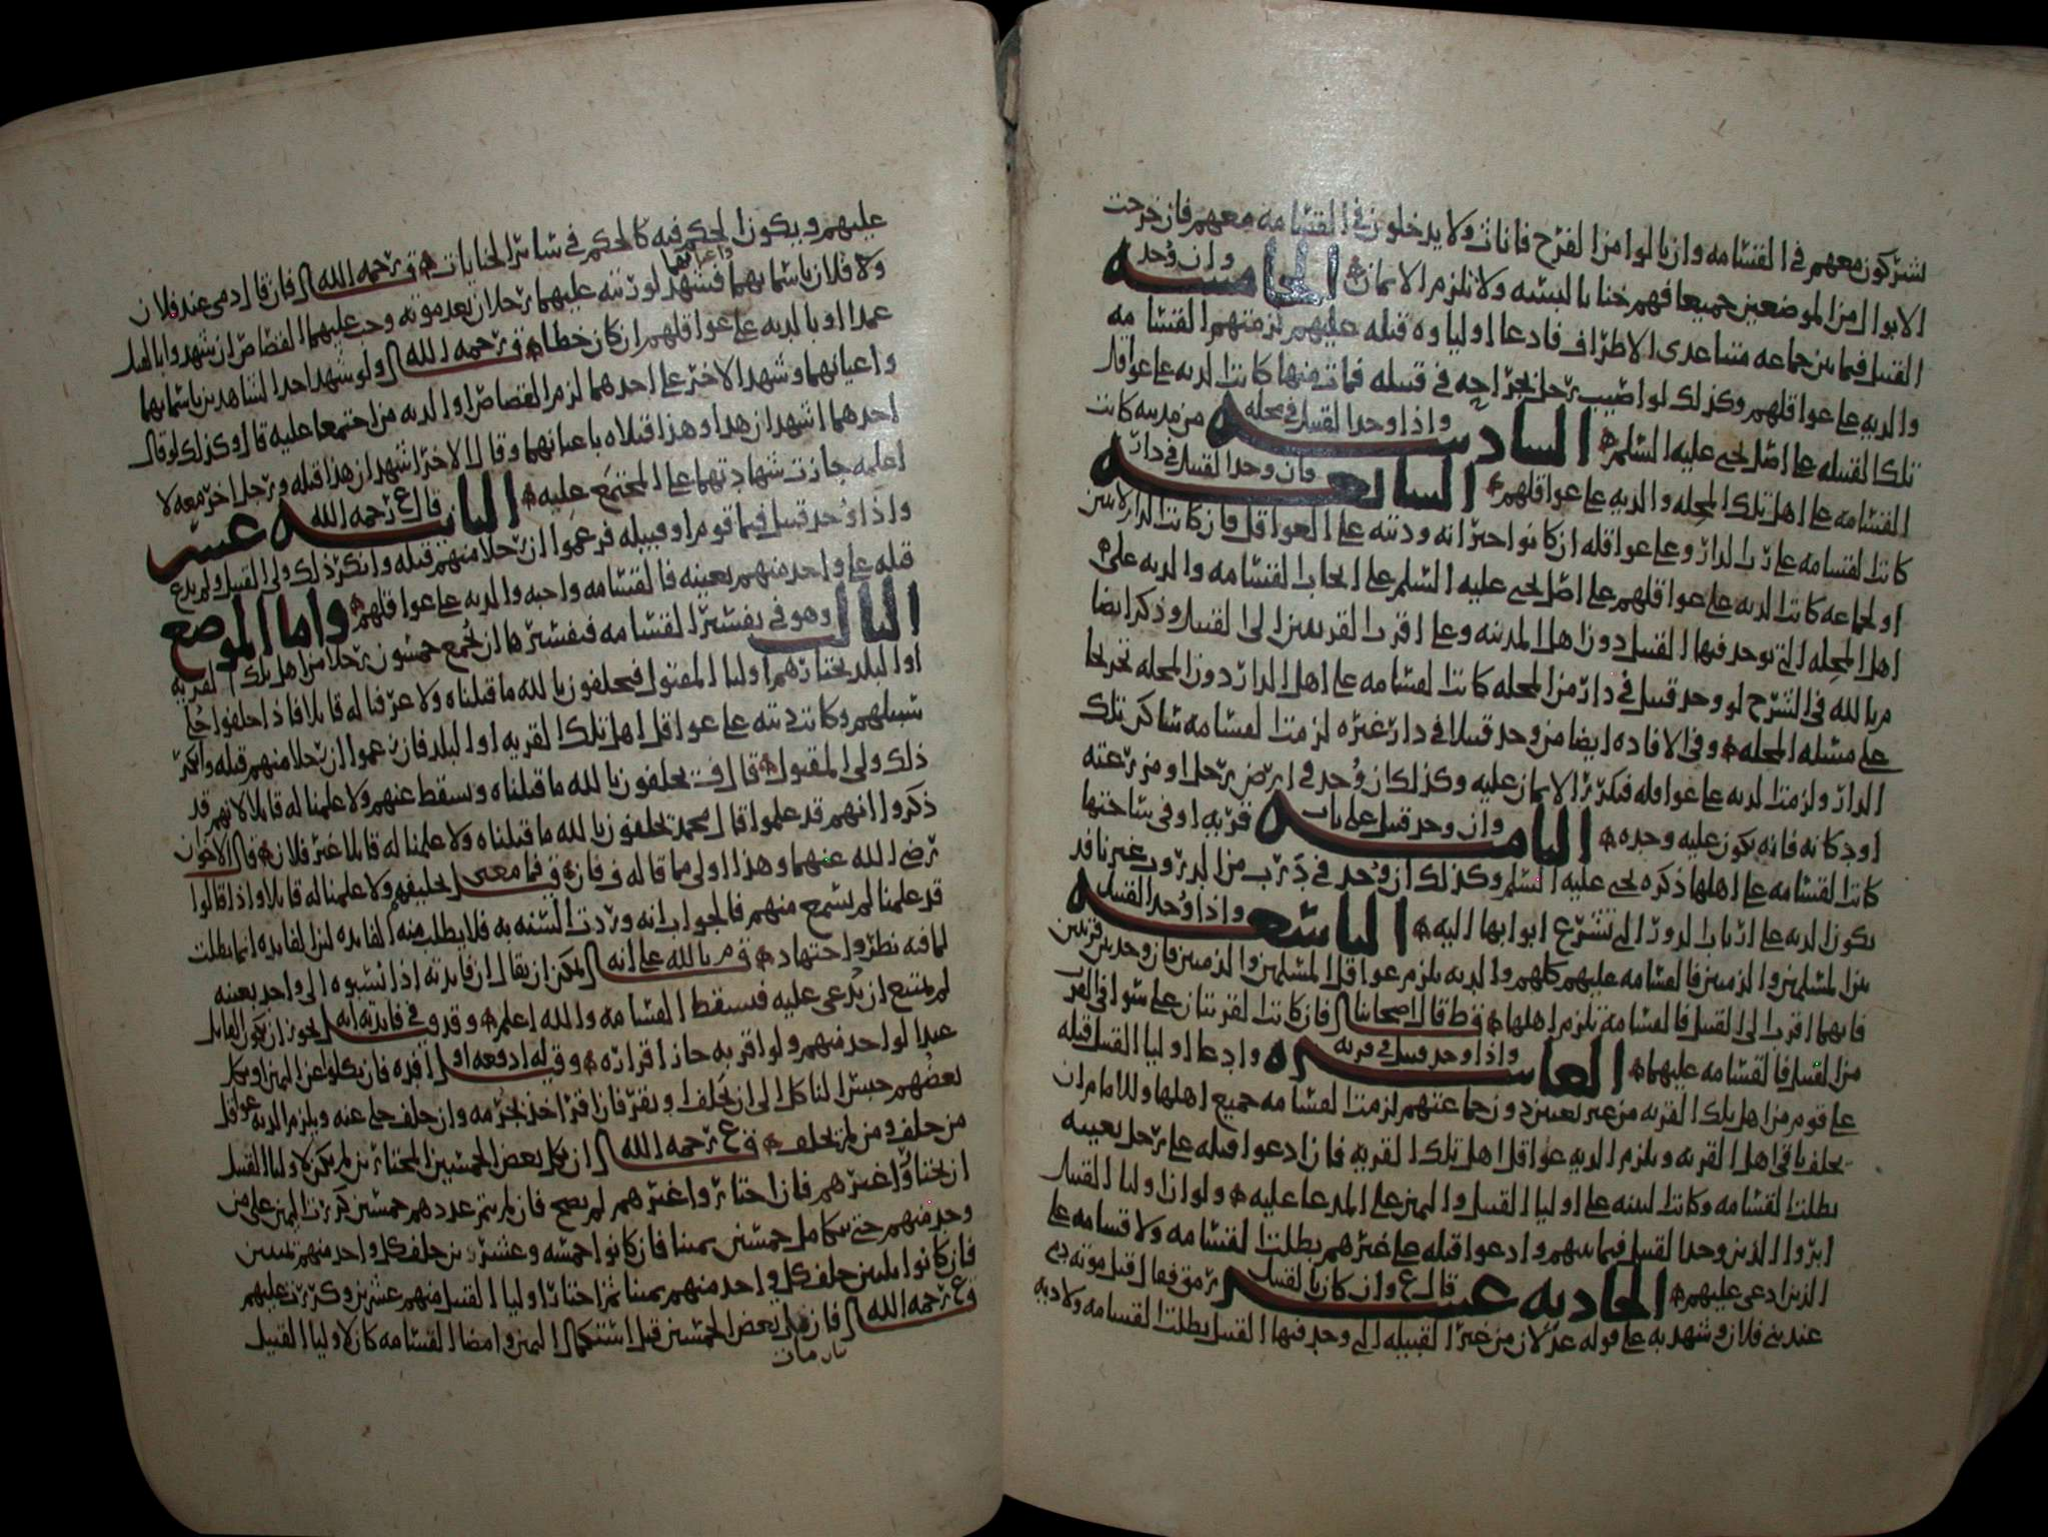 يشتركون معهم في القسامه وان بالوا من الفرج فاناث ولا يدخلون في القسامه معهم فان خرجت
الابوال من الموضعين جميعا فهم خناثا لبسه ولا تلزم الايمان الخامسه وان وُجد
القتيل فيما بين جماعه متباعدى الاطراف فادعا اولياوه قتله عليهم لزمتهم القسامه
والديه على عواقلهم وكذلك لو اصيب رجل بجراحه في قبيله فمات منها كانت الديه على عواقل
تلك القبيله على اصل يحيى عليه السلم السادسه واذا وجد القتيل في محله من مدينه كانت
القسامه على اهل تلك المحله والديه على عواقلهم السابعه فان وجد القتيل في دار
كانت القسامه على رب الدار وعلى عواقله ان كانوا حضرا نه وديته على العواقل فان كانت الدار لاثنين
او لجماعه كانت الديه على عواقلهم على اصل يحيى عليه السلم على الحاب القسامه والديه على
اهل المحله التي يوجد فيها القتيل دون اهل المدينه وعلى اقرب القريتين الى القتيل وذكر ايضا
م بالله في الشرح لو وجد قتيل في دار من المحله كانت القسامه على اهل الدار دون المحله تخريجا
على مسئله المحله وفي الافاده ايضا من وجد قتيلا في دار غيره لزمت القسامه ساكن تلك
الدار ولزمت الديه على عواقله فتكرر الايمان عليه وكذلك ان وُجد في ارض رجل او مزرعته
او دكانه فانه يكون عليه وحده الثامنه وان وجد قتيل على باب قريه او في ساحتها
كانت القسامه على اهلها ذكره يحيى عليه السلم وكذلك ان وُجد في درب من الدروب غير نافذ
يكون الديه على ارباب الدور التي تشرع ابوابها اليه التاسعه واذا وُجد القتيل
بين المسلمين والذميين فالقسامه عليهم كلهم والديه يلزم عواقل المسلمين والذميين فان وجد بين قريتين
فايهما اقرب الى القتيل فالقسامه تلزم اهلها ف ط قال اصحابنا فان كانت القريتان على سوا في القرب
من القتيل فالقسامه عليهما العاشره واذا وجد قتيل في قريه وادعا اوليا القتيل قتله
على قوم من اهل تلك القريه من غير تعيين دون جماعتهم لزمت القسامه جميع اهلها وللامام ان
يحلف باقي اهل القريه ويلزم الديه عواقل اهل تلك القريه فان ادعوا قتله على رجل بعينه
بطلت القسامه وكانت البينه على اوليا القتيل واليمين على المدعا عليه ولو ان اوليا القتيل
ابروا الذين وجد القتيل فيما بينهم وادعوا قتله على غيرهم بطلت القسامه ولا قسامه على
الذين ادعى عليهم الحاديه عشر قال ع وان كان بالقتيل رمق فقال قبل موته دمي
عند بني فلان وشهد به على قوله عدلان من غير القبيله التي وجد فيها القتيل بطلت القسامه ولا ديه
عليهم ويكون الحكم فيه كالحكم في سائر الجنايات ق رحمه الله فان قال دمي عند فلان
ولا فلان باسمايهما واعيانهما فشهد لورثته عليهما رجلان بعد موته وجب عليهما القصاص ان شهدوا بالقتل
عمدا او بالديه على عواقلهم ان كان خطا ق رحمه الله ولو شهد احد الشاهدين باسمايهما
واعيانهما وشهد الاخر على احدهما لزم القصاص او الديه من اجتمعا عليه قال وكذلك لو قال
احدهما اشهد ان هذا وهذا قتلاه باعيانهما وقال الاخر اشهد ان هذا قتله ورجل اخر معه لا
اعلمه جازت شهادتهما على المجتمع عليه الثانيه عشر قال ع رحمه الله
واذا وُجد قتيل فيما قوم او قبيله فزعموا ان رجلا منهم قتله وانكر ذلك ولي القتيل ولم يدع
قتله على واحد منهم بعينه فالقسامه واجبه والديه على عواقلهم واما الموضع
الثالث وهو في تفسير القسامه فتفسيرها ان يُجمع خمسون رجلا من اهل تلك القريه
او البلد يختارهم اوليا المقتول فيحلفون بالله ما قتلناه ولا عرفنا له قاتلا فاذا حلفوا خُلي
سبيلهم وكانت ديته على عواقل اهل تلك القريه او البلد فان زعموا ان رجلا منهم قتله وانكر
ذلك ولي المقتول قال ف يحلفون بالله ما قتلناه ويسقط عنهم ولا علمنا له قاتلا لانهم قد
ذكروا انهم قد علموا قال محمد يحلفون بالله ما قتلناه ولا علمنا له قاتلا غير فلان قال الاخوان
رضي الله عنهما وهذا اولى مما قاله ف فان ق فما معنى تحليفهم ولا علمنا له قاتلا واذا قالوا
قد علمنا لم يسمع منهم فالجواب انه وردت السنه به فلا يطلب منه الفايده لان الفايده انما يطلب
لما فيه نظر واجتهاد ق م بالله على انه لا يمكن ان يقال ان فايدته اذا نسبوه الى واحد بعينه
لم يمتنع ان يُدعى عليه فتسقط القسامه والله اعلم وقد ق في فايدته انه يجوز ان يكون القاتل
عبدا لواحد منهم ولو اقر به جاز اقراره وقيل له ادفعه او افده فان نكلوا عن اليمين او نكل
بعضهم حبس الناكل الى ان يحلف او يقر فان اقر اخذ بجرمه وان حلف خلي عنه ويلزم الديه عواقل
من حلف ومن لم يحلف ق ع رحمه الله ان نكل بعض الخمسين المختارين لم يكن لاوليا القتيل
ان يختاروا غيرهم فان اختاروا غيرهم لم يصح فان لم يتم عددهم خمسين كررت اليمين على من
وجد منهم حتى يتكامل خمسين يمينا فان كانوا خمسه وعشرين حلف كل واحد منهم يمينين
فان كانوا ثلثين حلف كل واحد منهم يمينا ثم اختار اوليا القتيل منهم عشرين وكررت عليهم
ق ع رحمه الله فان مات بعض الخمسين قبل استكمال اليمين وامضا القسامه كان لاوليا القتيل